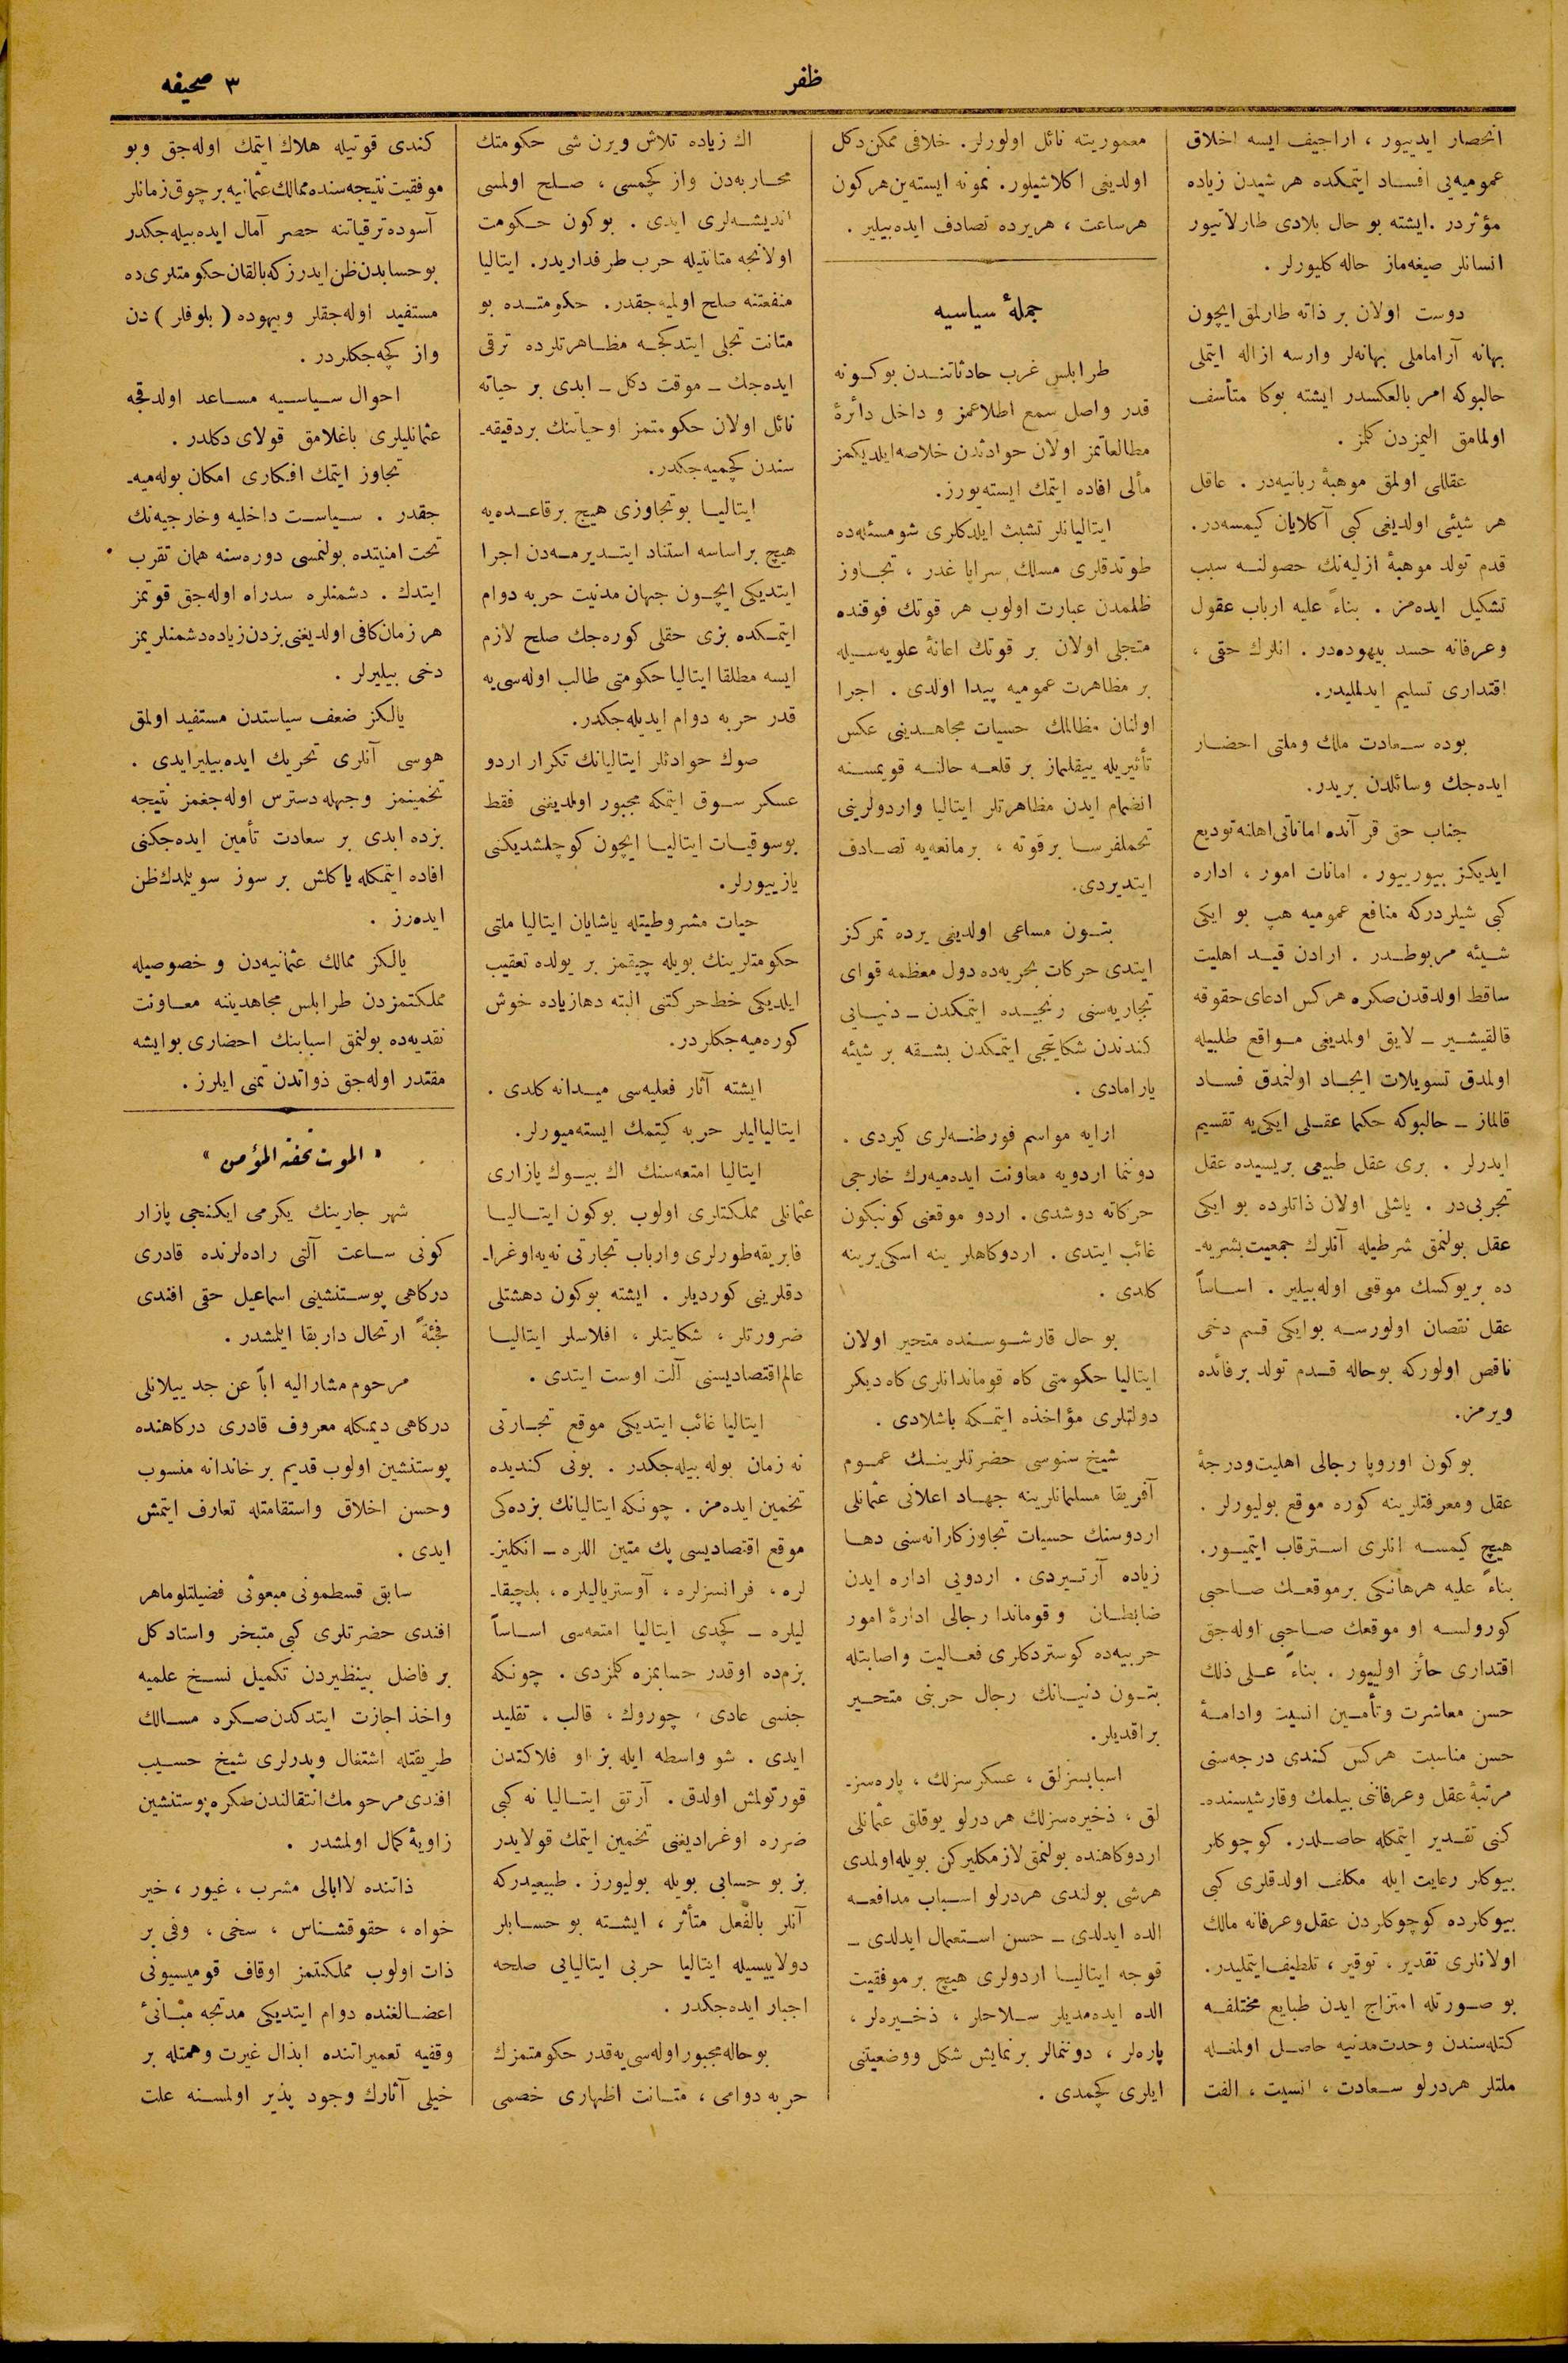 ظفر
٣ صحیفه
انحصار ایدییور ، اراجیف ایسه اخلاق
عمومیه‌یی افساد ایتمکده هر شیدن زیاده
مؤثردر . ایشته بو حال بلادی طارلاتیور
انسانلر صیغه‌ماز حاله کلیورلر .
دوست اولان بر ذاته طارلمق ایچون
بهانه آراماملی بهانه‌لر وارسه ازاله ایتملی
حالبوکه امر بالعکسدر ایشته بوکا متأسف
اولمامق المزدن کلمز .
عقللی اولمق موهبهٔ ربانیه‌در . عاقل
هر شیئی اولدیغی کبی آکلایان کیمسه‌در .
قدم تولد موهبهٔ ازلیه‌نك حصولنه سبب
تشکیل ایده‌مز . بناءً علیه ارباب عقول
وعرفانه حسد بیهوده‌در . انلرك حقی ،
اقتداری تسلیم ایدلملیدر.
بوده سعادت ملك وملتی احضار
ایده‌جك وسائلدن بریدر.
جناب حق قرآنده اماناتی اهلنه تودیع
ایدیکز بیورییور . امانات امور ، اداره
کبی شیلردرکه منافع عمومیه هپ بو ایکی
شیئه مربوطدر . ارادن قید اهلیت
ساقط اولدقدن صکره هرکس ادعای حقوقه
قالقیشیر ــ لایق اولمدیغی مواقع طلبیله
اولمدق تسویلات ایجاد اولنمدق فساد
قالماز ــ حالبوکه حکما عقلی ایکی‌یه تقسیم
ایدرلر . بری عقل طبیعی بریسیده عقل
تجربی‌در . یاشلی اولان ذاتلرده بو ایکی
عقل بولنمق شرطیله آنلرك جمعیت بشریه‌ـ
ده بریوکسك موقعی اوله‌بیلیر . اساساً
عقل نقصان اولورسه بوایکی قسم دخی
ناقص اولورکه بوحاله قدم تولد بر فائده
ویرمز.
بوکون اوروپا رجالی اهلیت‌ودرجهٔ
عقل ومعرفتلرینه کوره موقع بولیورلر .
هیچ کیمسه انلری استرقاب ایتمیور.
بناءً علیه هرهانکی برموقعك صاحبی
کورولسه او موقعك صاحبی اوله‌جق
اقتداری حائز اولییور . بناءً علی ذلك
حسن معاشرت وتأمین انسیت وادامهٔ
حسن مناسبت هرکس کندی درجه‌سنی
مرتبهٔ عقل وعرفانی بیلمك وقارشیسنده‌ـ
کنی تقدیر ایتمکله حاصلدر. کوچوکلر
بیوکلر رعایت ایله مکلف اولدقلری کبی
بیوکلرده کوچوکلردن عقل‌وعرفانه مالك
اولانلری تقدیر ، توقیر ، تلطیف‌ایتملیدر.
بو صورتله امتزاج ایدن طبایع مختلفه
کتله‌سندن وحدت مدنیه حاصل اولمغله
ملتلر هردرلو سعادت ، انسیت ، الفت
معموریته نائل اولورلر. خلافی ممکن دکل
اولدیغی اکلاشیلور. نمونه ایسته‌ین هرکون
هرساعت ، هریرده تصادف ایده‌بیلیر .
جملهٔ سیاسیه
طرابلس غرب حادثاتندن بوکونه
قدر واصل سمع اطلاعمز و داخل دائرهٔ
مطالعاتمز اولان حوادثدن خلاصه‌ایلدیکمز
مآلی افاده ایتمك ایسته‌یورز.
ایتالیانلر تشبث ایلدکلری شومسئله‌ده
طوتدقلری مسلك سراپا غدر ، تجاوز
ظلمدن عبارت اولوب هر قوتك فوقنده
متجلی اولان بر قوتك اعانهٔ علویه‌سیله
بر مظاهرت عمومیه پیدا اولدی . اجرا
اولنان مظالمك حسیات مجاهدینی عکس
تأثیریله ییقلماز بر قلعه حالنه قویمسنه
انضمام ایدن مظاهرتلر ایتالیا واردولرینی
تحملفرسا برقوته ، برمانعه‌یه تصادف
ایتدیردی.
بتون مساعی اولدیغی یرده تمرکز
ایتدی حرکات بحریه‌ده دول معظمه قوای
تجاریه‌سنی رنجیده ایتمکدن ــ دنیایی
کندندن شکایتجی ایتمکدن بشقه بر شیئه
یارامادی .
ارایه مواسم فورطنه‌لری کیردی .
دوننما اردویه معاونت ایده‌میه‌رك خارجی
حرکاته دوشدی . اردو موقعنی کونبکون
غائب ایتدی . اردوکاهلر ینه اسکی یرینه
کلدی .
بو حال قارشوسنده متحیر اولان
ایتالیا حکومتی کاه قوماندانلری کاه دیکر
دولتلری مؤاخذه ایتمکه باشلادی .
شیخ سنوسی حضرتلرینك عموم
آفریقا مسلمانلرینه جهاد اعلانی عثمانلی
اردوسنك حسیات تجاوزکارانه‌سنی دها
زیاده آرتیردی . اردونی اداره ایدن
ضابطان وقوماندا رجالی ادارهٔ امور
حربیه‌ده کوستردکلری فعالیت واصابتله
بتون دنیانك رجال حربنی متحیر
براقدیلر.
اسبابسزلق ، عسکرسزلك ، پاره‌سزـ
لق ، ذخیره‌سزلك هر درلو یوقلق عثمانلی
اردوکاهنده بولنمق لازمکلیرکن بویله‌اولمدی
هرشی بولندی هردرلو اسباب مدافعه
الده ایدلدی ــ حسن استعمال ایدلدی ــ
قوجه ایتالیا اردولری هیچ برموفقیت
الده ایده‌مدیلر سلاحلر ، ذخیره‌لر ،
پاره‌لر ، دوننمالر برنمایش شکل ووضعیتنی
ایلری کچمدی .
اك زیاده تلاش ویرن شی حکومتك
محاربه‌دن واز کچمسی ، صلح اولمسی
اندیشه‌لری ایدی . بوکون حکومت
اولانجه متانتیله حرب طرفداریدر. ایتالیا
منفعتنه صلح اولمیه‌جقدر. حکومتده بو
متانت تجلی ایتدکجه مظاهرتلرده ترقی
ایده‌جك ــ موقت دکل ــ ابدی بر حیاته
نائل اولان حکومتمز اوحیاتنك بردقیقه‌ـ
سندن کچمیه‌جکدر.
ایتالیا بوتجاوزی هیچ برقاعده‌یه
هیچ براساسه استناد ایتدیرمه‌دن اجرا
ایتدیکی ایچون جهان مدنیت حربه دوام
ایتمکده بزی حقلی کوره‌جك صلح لازم
ایسه مطلقا ایتالیا حکومتی طالب اوله‌سی‌یه
قدر حربه دوام ایدیله‌جکدر.
صوك حوادثلر ایتالیانك تکرار اردو
عسکر سوق ایتمکه مجبور اولدیغنی فقط
بوسوقیات ایتالیا ایچون کوچلشدیکنی
یازییورلر.
حیات مشروطیتله یاشایان ایتالیا ملتی
حکومتلرینك بویله چیقمز بر یولده تعقیب
ایلدیکی خط حرکتنی البته دهازیاده خوش
کورمیه‌جکلردر.
ایشته آثار فعلیه‌سی میدانه کلدی .
ایتالیالیلر حربه کیتمك ایسته‌میورلر.
ایتالیا امتعه‌سنك اك بیوك پازاری
عثمانلی مملکتلری اولوب بوکون ایتالیا
فابریقه‌طورلری وارباب تجارتی نه‌یه‌اوغراـ
دقلرینی کوردیلر . ایشته بوکون دهشتلی
ضرورتلر ، شکایتلر ، افلاسلر ایتالیا
عالم‌اقتصادیسنی آلت اوست ایتدی .
ایتالیا غائب ایتدیکی موقع تجارتی
نه زمان بوله‌بیله‌جکدر . بونی کندیده
تخمین ایده‌مز . چونکه ایتالیانك بزده‌کی
موقع اقتصادیسی پك متین اللره ــ انکلیزـ
لره ، فرانسزلره ، آوستریالیلره ، بلچیقاـ
لیلره ــ کچدی ایتالیا امتعه‌سی اساساً
بزم‌ده اوقدر حسابمزه کلمزدی . چونکه
جنسی عادی ، چوروك ، قالب ، تقلید
ایدی . شو واسطه ایله بز او فلاکتدن
قورتولمش اولدق . آرتق ایتالیا نه کبی
ضرره اوغرادیغنی تخمین ایتمك قولایدر
بز بو حسابی بویله بولیورز . طبیعیدرکه
آنلر بالفعل متأثر ، ایشته بو حسابلر
دولاییسیله ایتالیا حربی ایتالیایی صلحه
اجبار ایده‌جکدر .
بوحاله مجبور اوله‌سی‌یه‌قدر حکومتمزك
حربه دوامی ، متانت اظهاری خصمی
کندی قوتیله هلاك ایتمك اوله‌جق وبو
موفقیت نتیجه‌سنده‌ممالك عثمانیه برچوق زمانلر
آسوده ترقیاتنه حصر آمال ایده‌بیله‌جکدر
بوحسابدن ظن ایدرزکه بالقان حکومتلری ده
مستفید اوله‌جقلر وبیهوده ( بلوفلر ) دن
واز کچه‌جکلردر .
احوال سیاسیه مساعد اولدقجه
عثمانلیلری باغلامق قولای دکلدر .
تجاوز ایتمك افکاری امکان بوله‌میه‌ـ
جقدر . سیاست داخلیه وخارجیه‌نك
تحت امنیتده بولنمسی دوره‌سنه همان تقرب
ایتدك . دشمنلره سدراه اوله‌جق قوتمز
هر زمان کافی اولدیغنی بزدن زیاده دشمنلریمز
دخی بیلیرلر .
یالکز ضعف سیاستدن مستفید اولمق
هوسی آنلری تحریك ایده‌بیلیرایدی .
تخمینمز وجهله دسترس اوله‌جغمز نتیجه
بزده ابدی بر سعادت تأمین ایده‌جکنی
افاده ایتمکله یاکلش بر سوز سویلمدك ظن
ایده‌رز .
یالکز ممالك عثمانیه‌دن وخصوصیله
مملکتمزدن طرابلس مجاهدیننه معاونت
نقدیه‌ده بولنمق اسبابنك احضاری بوایشه
مقتدر اوله‌جق ذواتدن تمنی ایلرز .
« الموت تحفة المؤمن »
شهر جارینك یکرمی ایکنجی پازار
کونی ساعت آلتی راده‌لرنده قادری
درکاهی پوستنشینی اسماعیل حقی افندی
فجئةً ارتحال داربقا ایلمشدر .
مرحوم مشارالیه اباً عن جد ییلانلی
درکاهی دیمکله معروف قادری درکاهنده
پوستنشین اولوب قدیم برخاندانه منسوب
وحسن اخلاق واستقامتله تعارف ایتمش
ایدی .
سابق قسطمونی مبعوثی فضیلتلو ماهر
افندی حضرتلری کبی متبحر واستاد کل
بر فاضل بینظیردن تکمیل نسخ علمیه
واخذ اجازت ایتدکدن صکره مسالك
طریقتله اشتغال وپدرلری شیخ حسیب
افندی مرحومك انتقالندن صکره پوستنشین
زاویهٔ کمال اولمشدر .
ذاتنده لاابالی مشرب ، غیور ، خیر
خواه ، حقوقشناس ، سخی ، وفی بر
ذات اولوب مملکتمز اوقاف قومیسیونی
اعضالغنده دوام ایتدیکی مدتجه مبانیٔ
وقفیه تعمیراتنده ابذال غیرت وهمتله بر
خیلی آثارك وجود پذیر اولمسنه علت